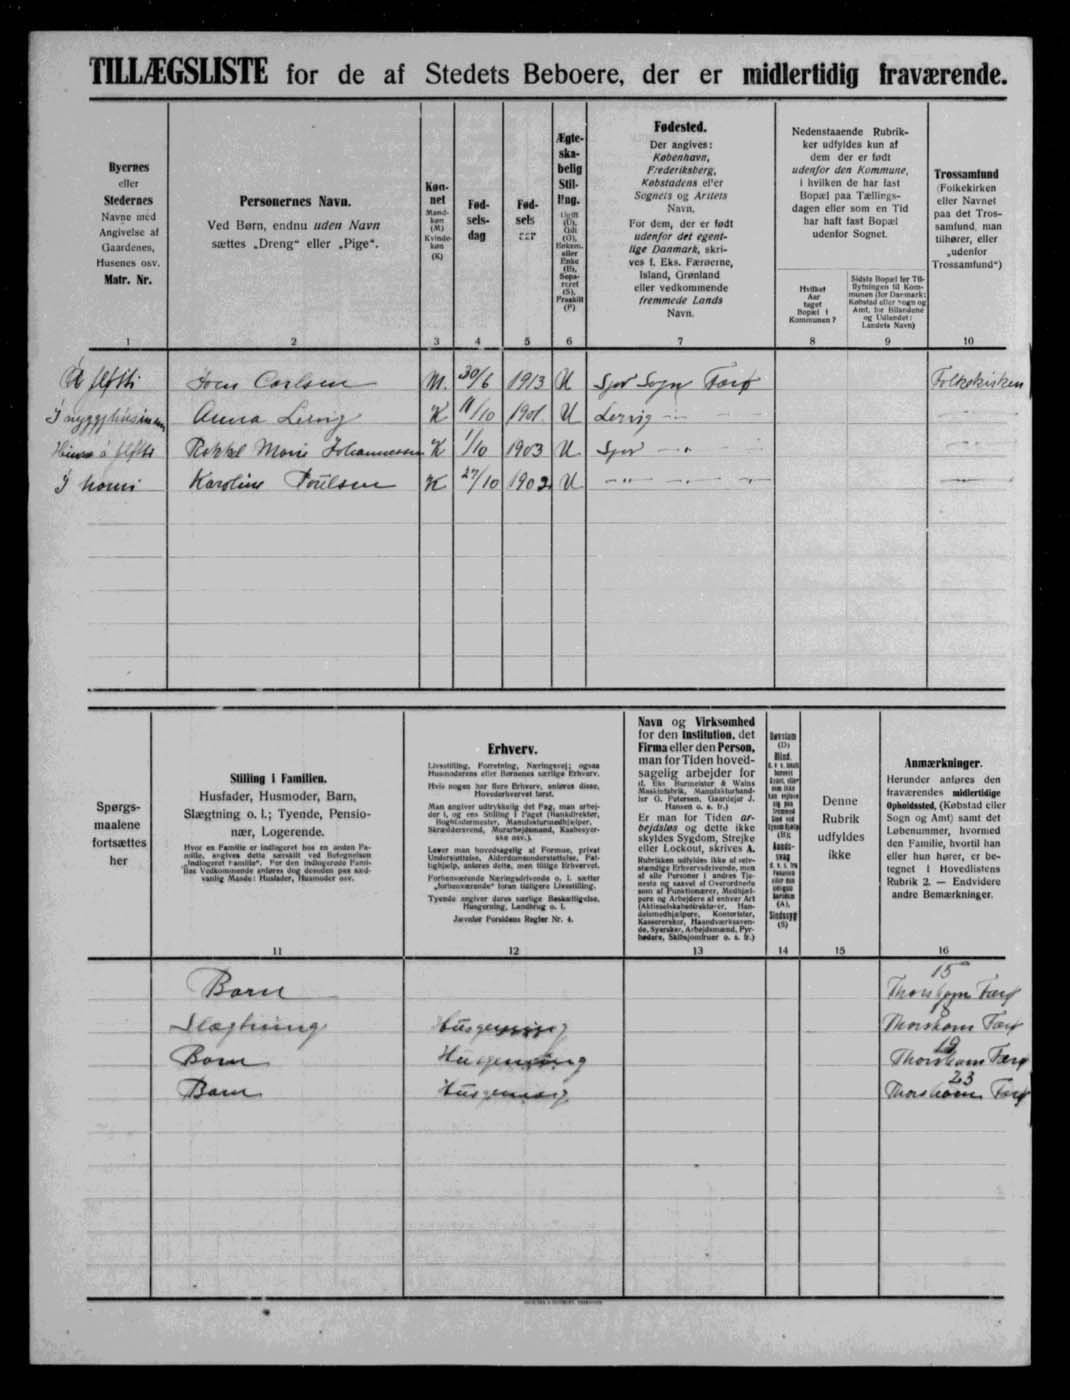 TILLÆGSLISTE for de af Stedets Beboere, der er midlertidig fraværende.
Byernes
eller
Stedernes
Navne med
Angivelse af
Gaardenes,
Husenes osv.
Matr. Nr.
1
Personernes Navn.
Ved Børn, endnu uden Navn
sættes „Dreng“ eller „Pige“.
2
Køn-
net
Mand-
køn
(M)
Kvinde-
køn
(K)
3
Fød-
sels-
dag
4
Fød-
sels
aar
5
Ægte-
ska-
belig
Stil-
ling.
Ugift
(U),
Gift
(G),
Enkem.
eller
Enke
(E),
Sepa-
reret
(S),
Fraskilt
(F)
6
Fødested.
Der angives:
København,
Frederiksberg,
Købstadens eller
Sognets og Amtets
Navn.
For dem, der er født
udenfor det egent-
lige Danmark, skri-
ves f. Eks. Færøerne,
Island, Grønland
eller vedkommende
fremmede Lands
Navn.
7
Nedenstaaende Rubrik-
ker udfyldes kun af
dem der er født
udenfor den Kommune,
i hvilken de har fast
Bopæl paa Tællings-
dagen eller som en Tid
har haft fast Bopæl
udenfor Sognet.
Hvilket
Aar
taget
Bopæl i
Kommunen?
8
Sidste Bopæl før Til-
flytningen til Kom-
munen (for Danmark:
Købstad eller Sogn og
Amt, for Bilandene
og Udlandet:
Landets Navn)
9
Trossamfund
(Folkekirken
eller Navnet
paa det Tros-
samfund, man
tilhører, eller
„udenfor
Trossamfund“)
10
Carlsen M. 30/6 1913 U Sogn Færø Folkekirken
Anna Lervig K 11/10 1901 U Lervig — " —
Marie Johannesen K 1/10 1903 U — " —
Karoline Poulsen K 27/10 1902 U — " — — " —
Spørgs-
maalene
fortsættes
her
Stilling i Familien.
Husfader, Husmoder, Barn,
Slægtning o. l.; Tyende, Pensio-
nær, Logerende.
Hvor en Familie er indlogeret hos en anden Fa-
milie, angives dette særskilt ved Betegnelsen
„indlogeret Familie“. For den indlogerede Fami-
lies Vedkommende anføres dog desuden paa sæd-
vanlig Maade: Husfader, Husmoder osv.
11
Erhverv.
Livsstilling, Forretning, Næringsvej; ogsaa
Husmoderens eller Børnenes særlige Erhverv.
Hvis nogen har flere Erhverv, anføres disse,
Hovederhvervet først.
Man angiver udtrykkelig det Fag, man arbej-
der i, og ens Stilling i Faget (Bankdirektør,
Bogbindermester, Manufakturmedhjælper,
Skræddersvend, Murarbejdsmand, Kaabesyer-
ske osv.).
Lever man hovedsagelig af Formue, privat
Understøttelse, Alderdomsunderstøttelse, Fat-
tighjælp, anføres dette, men tillige Erhvervet.
Forhenværende Næringsdrivende o. l. sætter
„forhenværende“ foran tidligere Livsstilling.
Tyende angiver deres særlige Beskæftigelse,
Husgerning, Landbrug o. l.
Jævnfør Forsidens Regler Nr. 4.
12
Navn og Virksomhed
for den Institution, det
Firma eller den Person,
man for Tiden hoved-
sagelig arbejder for
(f. Eks Burmeister & Wains
Maskinfabrik, Manufakturhand-
ler G. Petersen, Gaardejer J.
Hansen o. s. fr.)
Er man for Tiden ar-
bejdsløs og dette ikke
skyldes Sygdom, Strejke
eller Lockout, skrives A.
Rubrikken udfyldes ikke af selv-
stændige Erhvervsdrivende, men
af alle Personer i andres Tje-
neste og saavel af Overordnede
som af Funktionærer, Medhjæl-
pere og Arbejdere af enhver Art
(Aktieselskabsdirektører, Han-
delsmedhjælpere, Kontorister,
Kassererskor, Haandværkssven-
de, Syersker, Arbejdsmænd, Fyr-
bødere, Skibsjomfruer o. s. fr.)
13
Døvstum
(D)
Blind
Aands-
svag
(A),
Sindssyg
(S)
14
Denne
Rubrik
udfyldes
ikke
15
Anmærkninger.
Herunder anføres den
fraværendes midlertidige
Opholdssted, (Købstad eller
Sogn og Amt) samt det
Løbenummer, hvormed
den Familie, hvortil han
eller hun hører, er be-
tegnet i Hovedlistens
Rubrik 2. — Endvidere
andre Bemærkninger.
16
15
Barn Thorshavn Færø
8
Slægtning Husgerning Thorshavn Færø
19
Barn Husgerning Thorshavn Færø
23
Barn Husgerning Thorshavn Færø